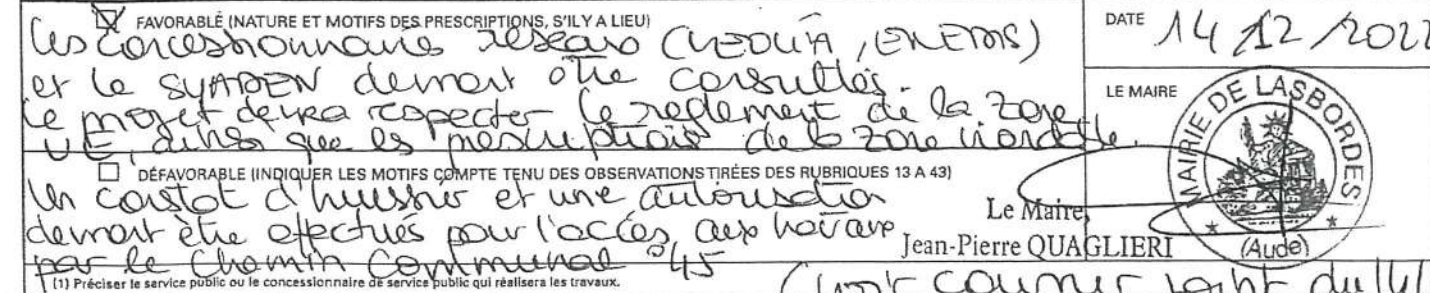 ☒ FAVORABLE (NATURE ET MOTIFS DES PRESCRIPTIONS, S'IL Y A LIEU)
Les concessionnaires réseaux (VEOLIA, ENEDIS)
et le SYADEN devront être consultés.
Le projet devra respecter le règlement de la zone
UE, ainsi que les prescriptions de la zone inondable.
☐ DÉFAVORABLE (INDIQUER LES MOTIFS COMPTE TENU DES OBSERVATIONS TIRÉES DES RUBRIQUES 13 A 43)
Un constat d'huissier et une autorisation
devront être effectués pour l'accès aux travaux
par le Chemin Communal n°45
(1) Préciser le service public ou le concessionnaire de service public qui réalisera les travaux.
DATE 14/12/2022
LE MAIRE
MAIRIE DE LASBORDES
(Aude)
Le Maire,
Jean-Pierre QUAGLIERI
(Voir courrier joint du 14/